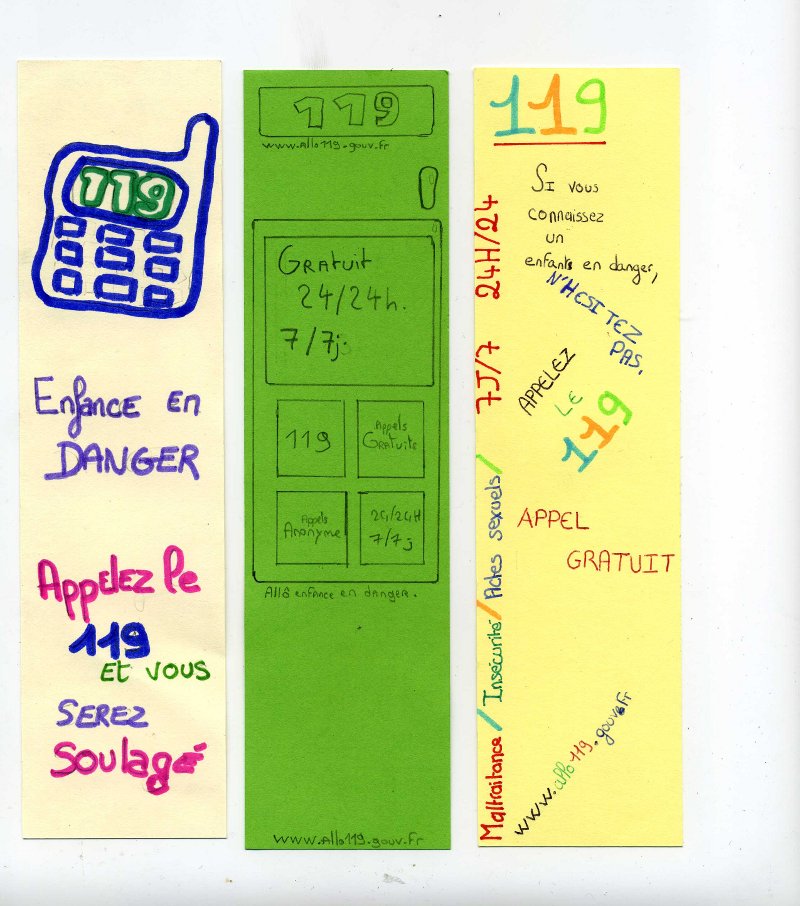 119
Enfance en
DANGER
Appelez le
119
Et vous
SEREZ
Soulagé
119
www.Allo119.gouv.fr
Gratuit
24/24h.
7/7j.
119
Appels
Gratuits
Appels
Anonyme
24/24H
7/7j
Allô enfance en danger.
www.Allo119.gouv.fr
119
Si vous
connaissez
un
enfants en danger,
N'HESITEZ
PAS,
APPELEZ
LE
119
APPEL
GRATUIT
www.allo119.gouv.fr
Maltraitance/Insécurité/Actes sexuels/ 7J/7 24H/24